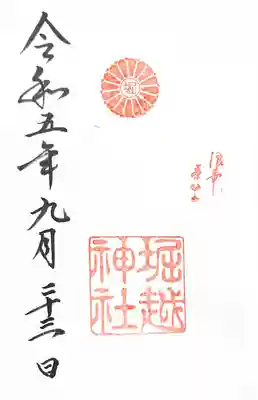 堀越
神社
令和五年九月二十三日